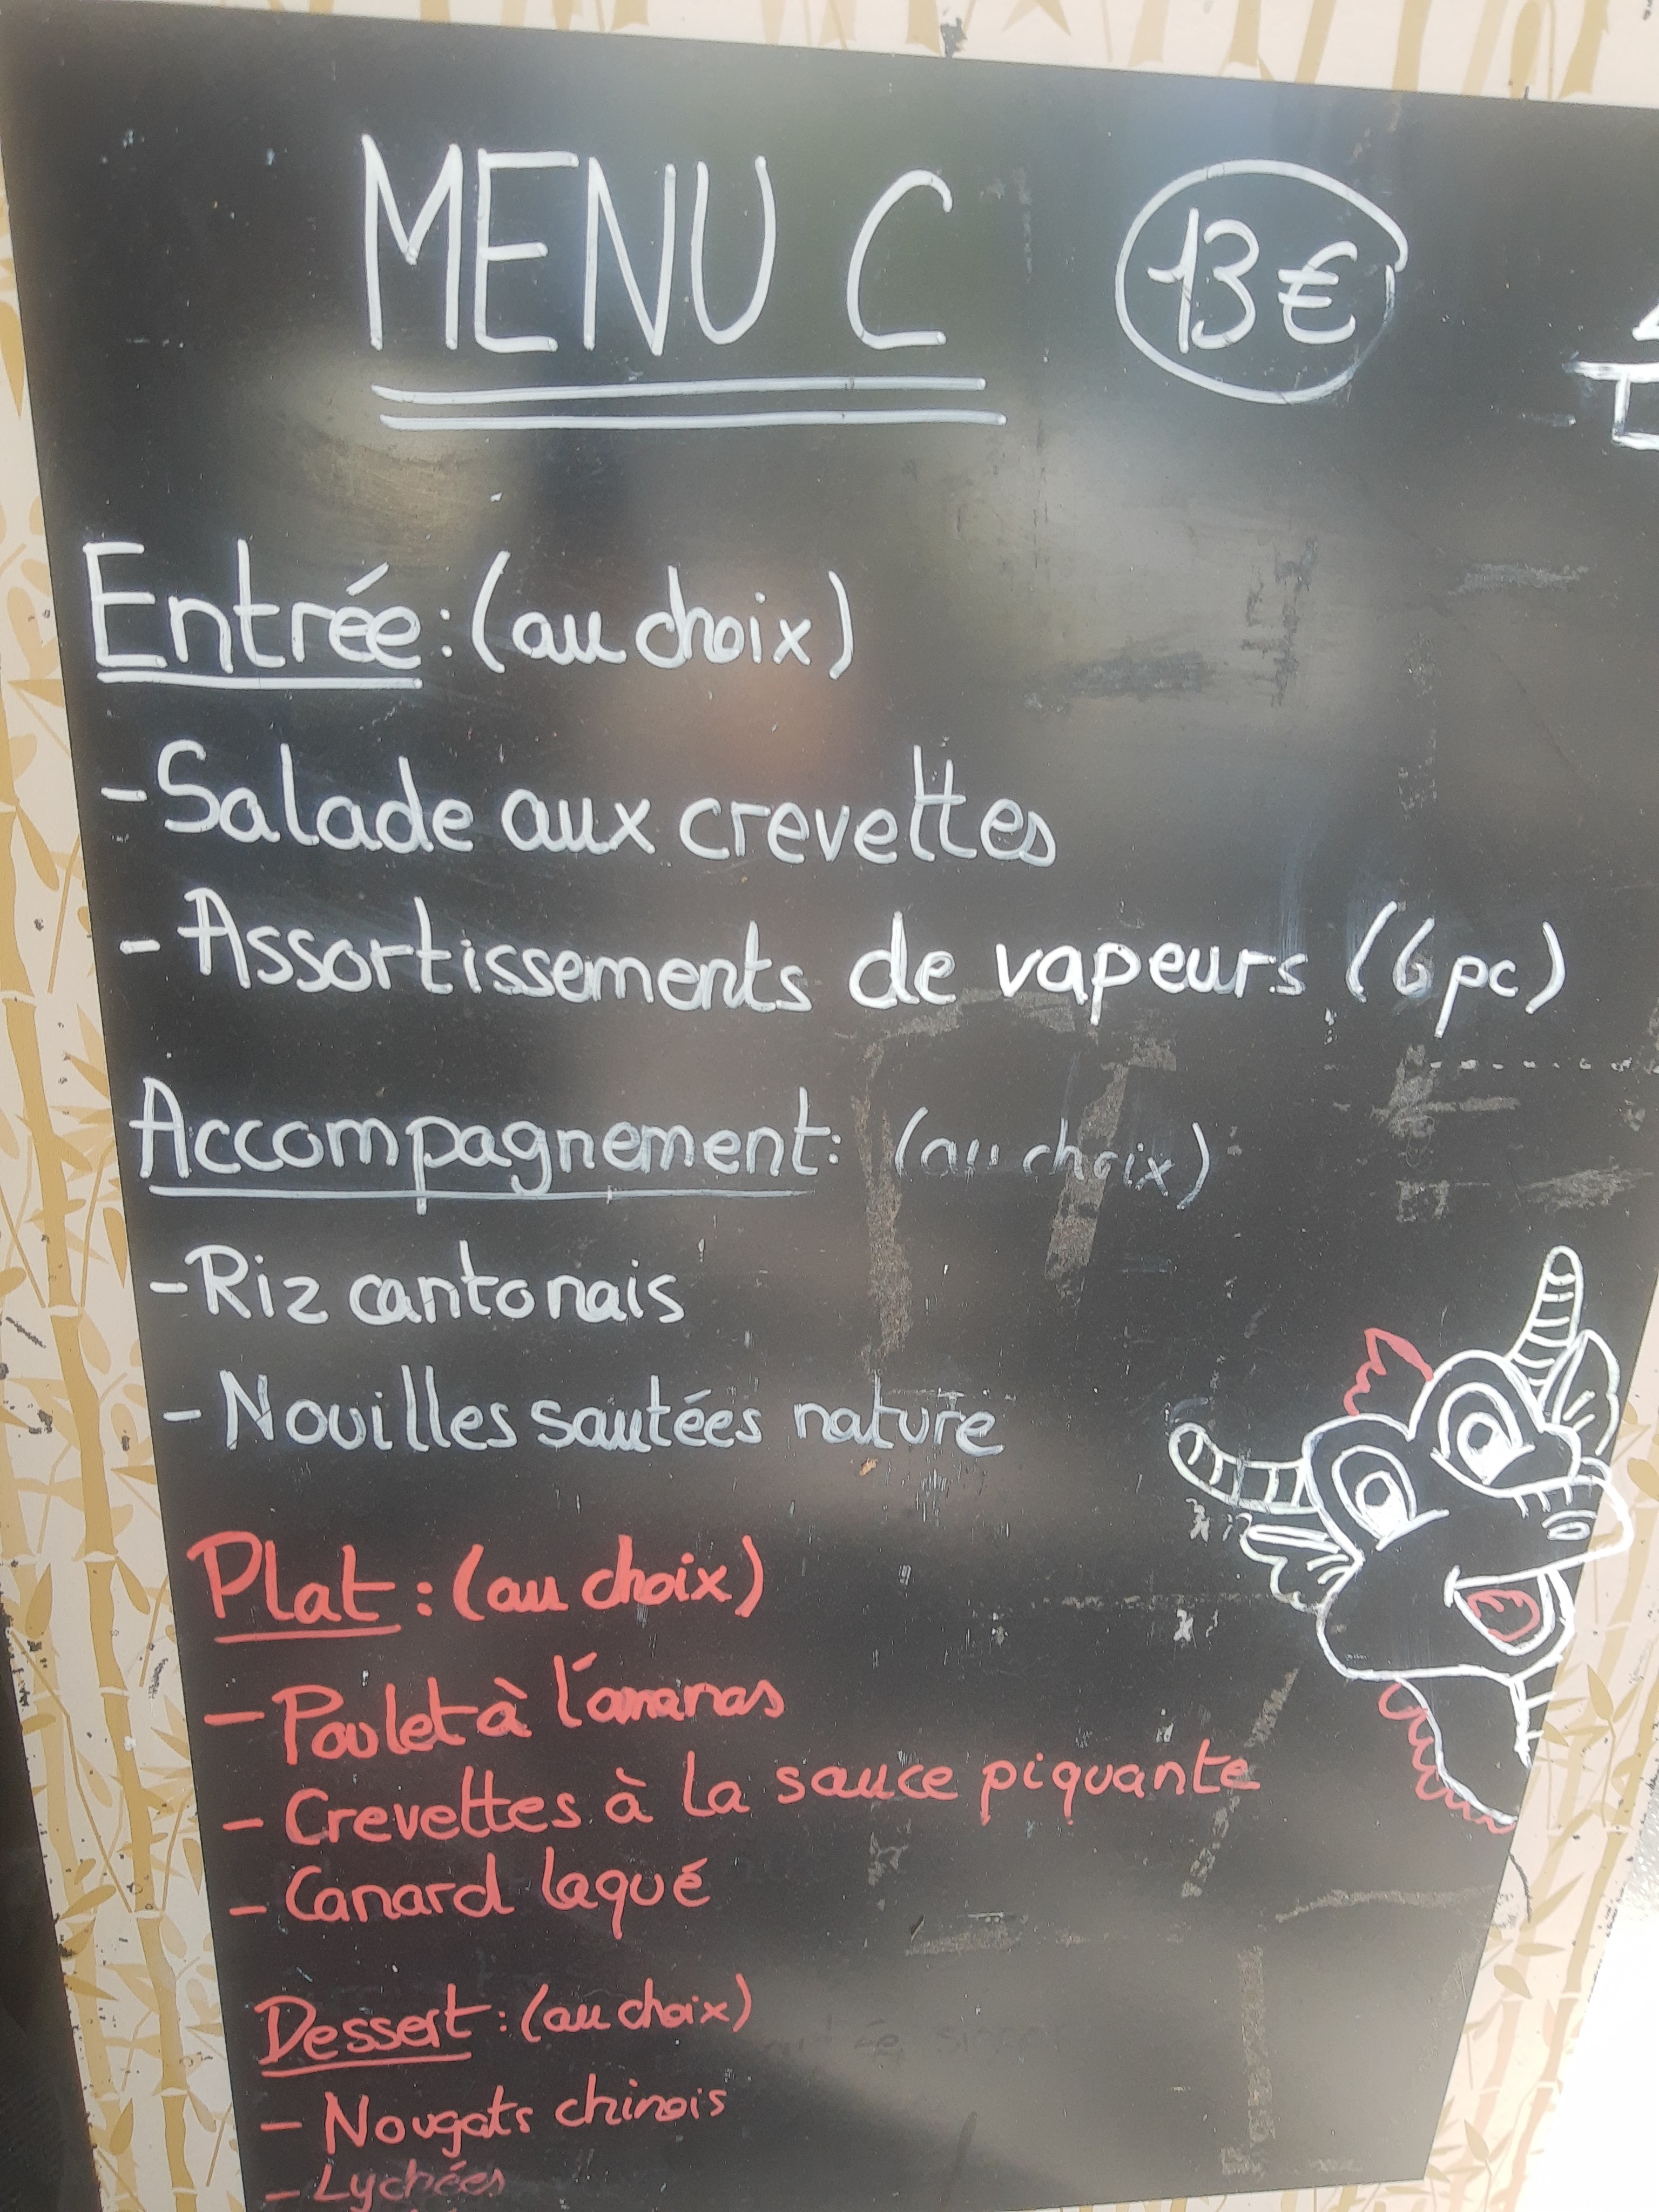 MENU C 13€
Entrée : (au choix)
- Salade aux crevettes
- Assortissements de vapeurs (6 pc)
Accompagnement : (au choix)
- Riz cantonais
- Nouilles sautées nature
Plat : (au choix)
- Poulet à l'ananas
- Crevettes à la sauce piquante
- Canard laqué
Dessert : (au choix)
- Nougats chinois
- Lychées